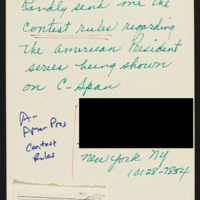 Kindly send me the
contest rules regarding
the American President
series being shown
on C-Span
A-
Amer Pres
Contest
Rules
New York NY
10128-7854